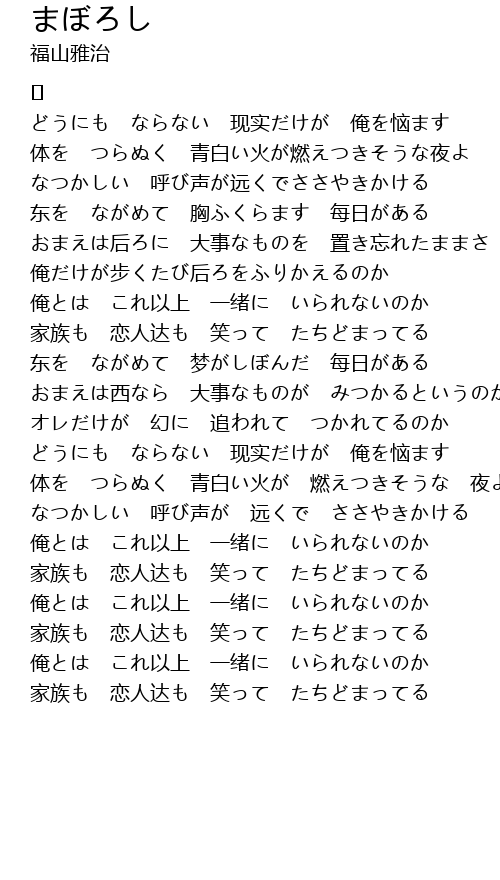 まぼろし
福山雅治
[]
どうにも　ならない　现实だけが　俺を恼ます
体を　つらぬく　青白い火が燃えつきそうな夜よ
なつかしい　呼び声が远くでささやきかける
东を　ながめて　胸ふくらます　每日がある
おまえは后ろに　大事なものを　置き忘れたままさ
俺だけが步くたび后ろをふりかえるのか
俺とは　これ以上　一绪に　いられないのか
家族も　恋人达も　笑って　たちどまってる
东を　ながめて　梦がしぼんだ　每日がある
おまえは西なら　大事なものが　みつかるというのか
オレだけが　幻に　追われて　つかれてるのか
どうにも　ならない　现实だけが　俺を恼ます
体を　つらぬく　青白い火が　燃えつきそうな　夜よ
なつかしい　呼び声が　远くで　ささやきかける
俺とは　これ以上　一绪に　いられないのか
家族も　恋人达も　笑って　たちどまってる
俺とは　これ以上　一绪に　いられないのか
家族も　恋人达も　笑って　たちどまってる
俺とは　これ以上　一绪に　いられないのか
家族も　恋人达も　笑って　たちどまってる